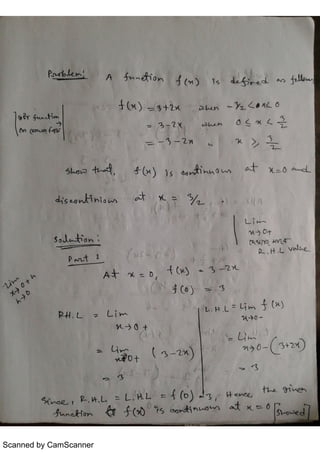 Problem: A function f(x) is defined as follows
f(x) = 3+2x when -3/2 < x < 0
= 3-2x, when 0 ≤ x < 3/2
= -3-2x " x ≥ 3/2
Show that, f(x) is continuous at x=0 and
discontinious at x = 3/2.
Lim
x→0+
R.H.L value
Solution:
Part 1
At x = 0, f(x) = 3-2x
f(0) = 3
Lim
x→0+h
h→0
R.H.L = Lim
x→0+
= Lim (3-2x)
x→0+
= 3
L.H.L = Lim f(x)
x→0-
= Lim (3+2x)
x→0-
= 3
Since, R.H.L = L.H.L = f(0) = 3, Hence the given
function f(x) is continuous at x = 0 [Showed]
Scanned by CamScanner